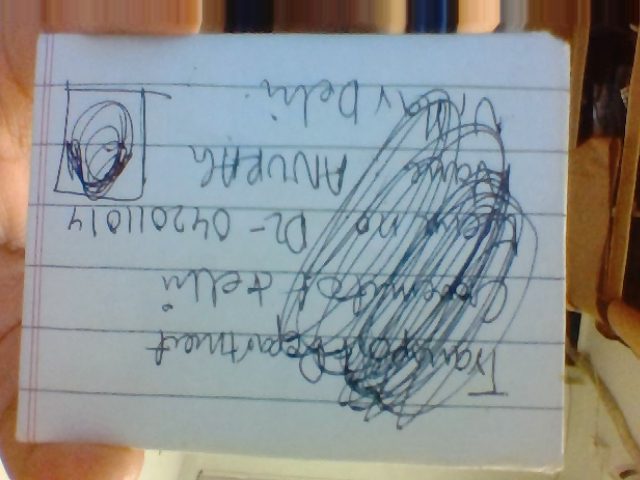 Transport Department
Government of delhi
DL-042011014
Name ANURAG
Delhi